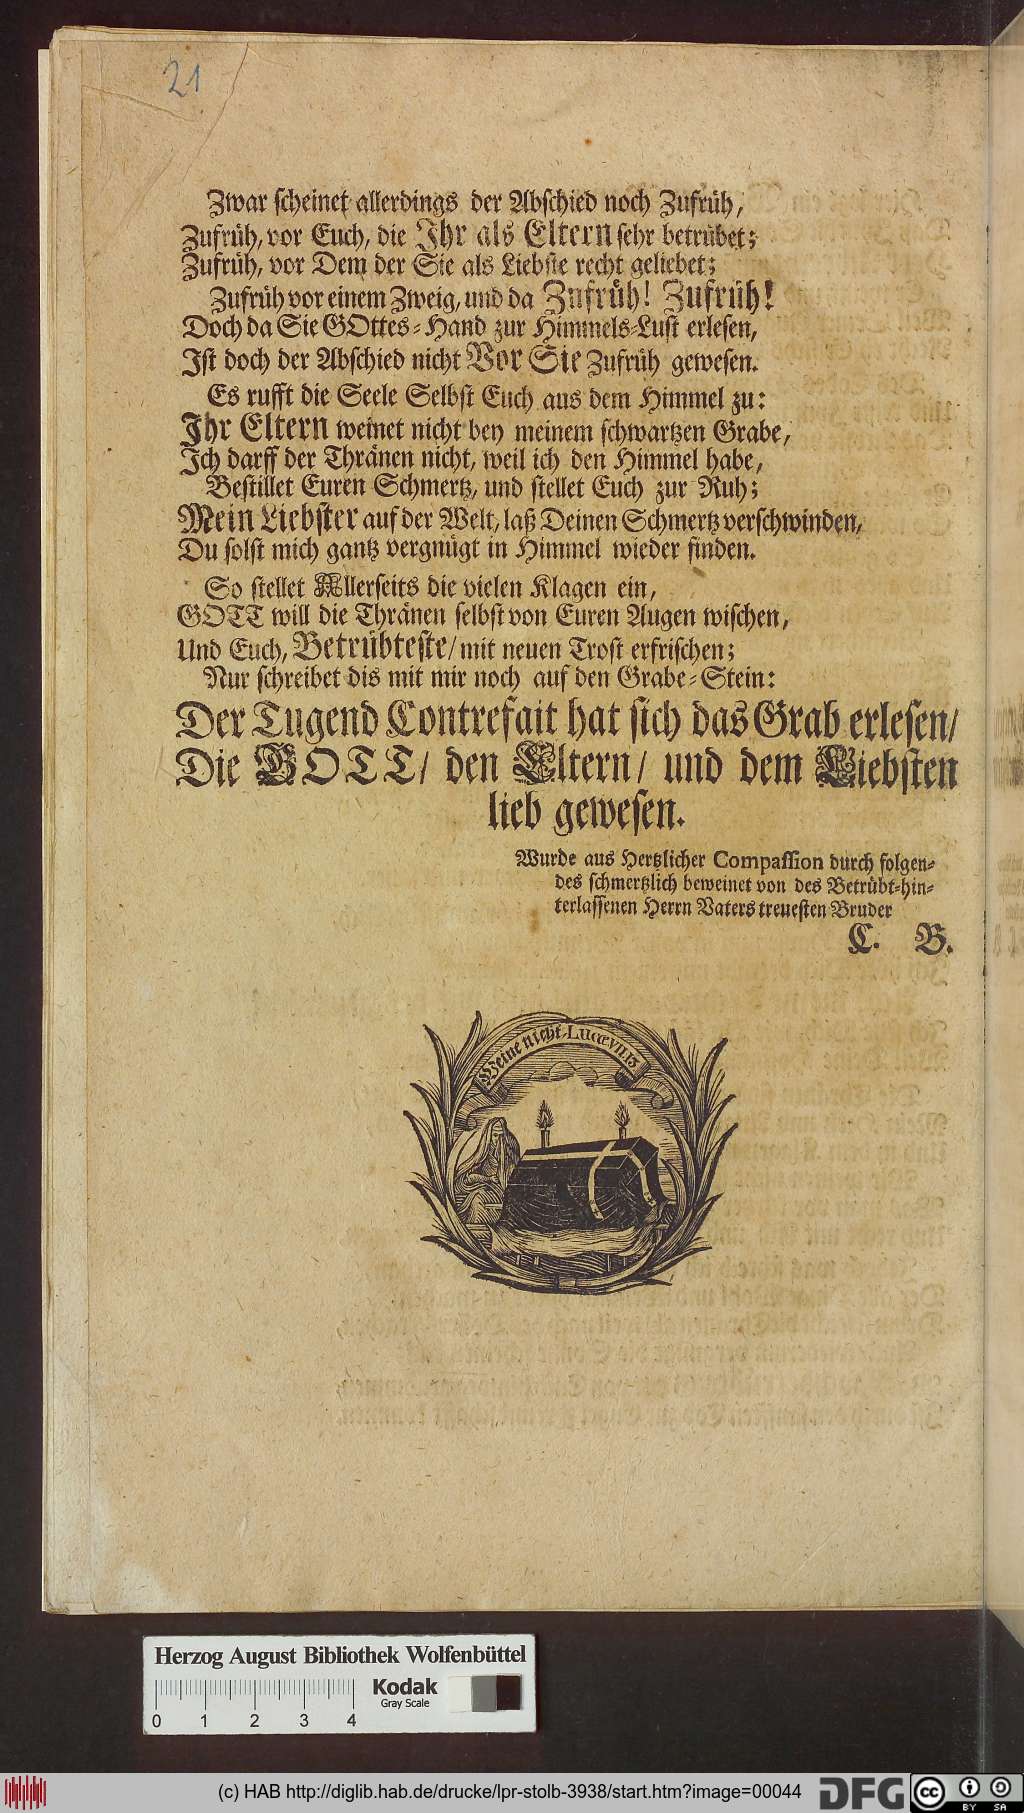 21
Zwar scheinet allerdings der Abschied noch Zufrüh,
Zufrüh, vor Euch, die Ihr als Eltern sehr betrübet;
Zufrüh, vor Dem der Sie als Liebste recht geliebet;
Zufrüh vor einem Zweig, und da Zufrüh! Zufrüh!
Doch da Sie GOttes-Hand zur Himmels-Lust erlesen,
Ist doch der Abschied nicht Vor Sie Zufrüh gewesen.
Es rufft die Seele Selbst Euch aus dem Himmel zu:
Ihr Eltern weinet nicht bey meinem schwartzen Grabe,
Ich darff der Thränen nicht, weil ich den Himmel habe,
Bestillet Euren Schmertz, und stellet Euch zur Ruh;
Mein Liebster auf der Welt, laß Deinen Schmertz verschwinden,
Du solst mich gantz vergnügt in Himmel wieder finden.
So stellet Allerseits die vielen Klagen ein,
GOTT will die Thränen selbst von Euren Augen wischen,
Und Euch, Betrübteste/ mit neuen Trost erfrischen;
Nur schreibet dis mit mir noch auf den Grabe-Stein:
Der Tugend Contrefait hat sich das Grab erlesen/
Die GOTT/ den Eltern/ und dem Liebsten
lieb gewesen.
Wurde aus Hertzlicher Compassion durch folgen-
des schmertzlich beweinet von des Betrübt-hin-
terlassenen Herrn Vaters treuesten Bruder
C. B.
Weine nicht. Luc. VII.13
Herzog August Bibliothek Wolfenbüttel
Kodak
Gray Scale
0 1 2 3 4
(c) HAB http://diglib.hab.de/drucke/lpr-stolb-3938/start.htm?image=00044
DFG
cc BY SA